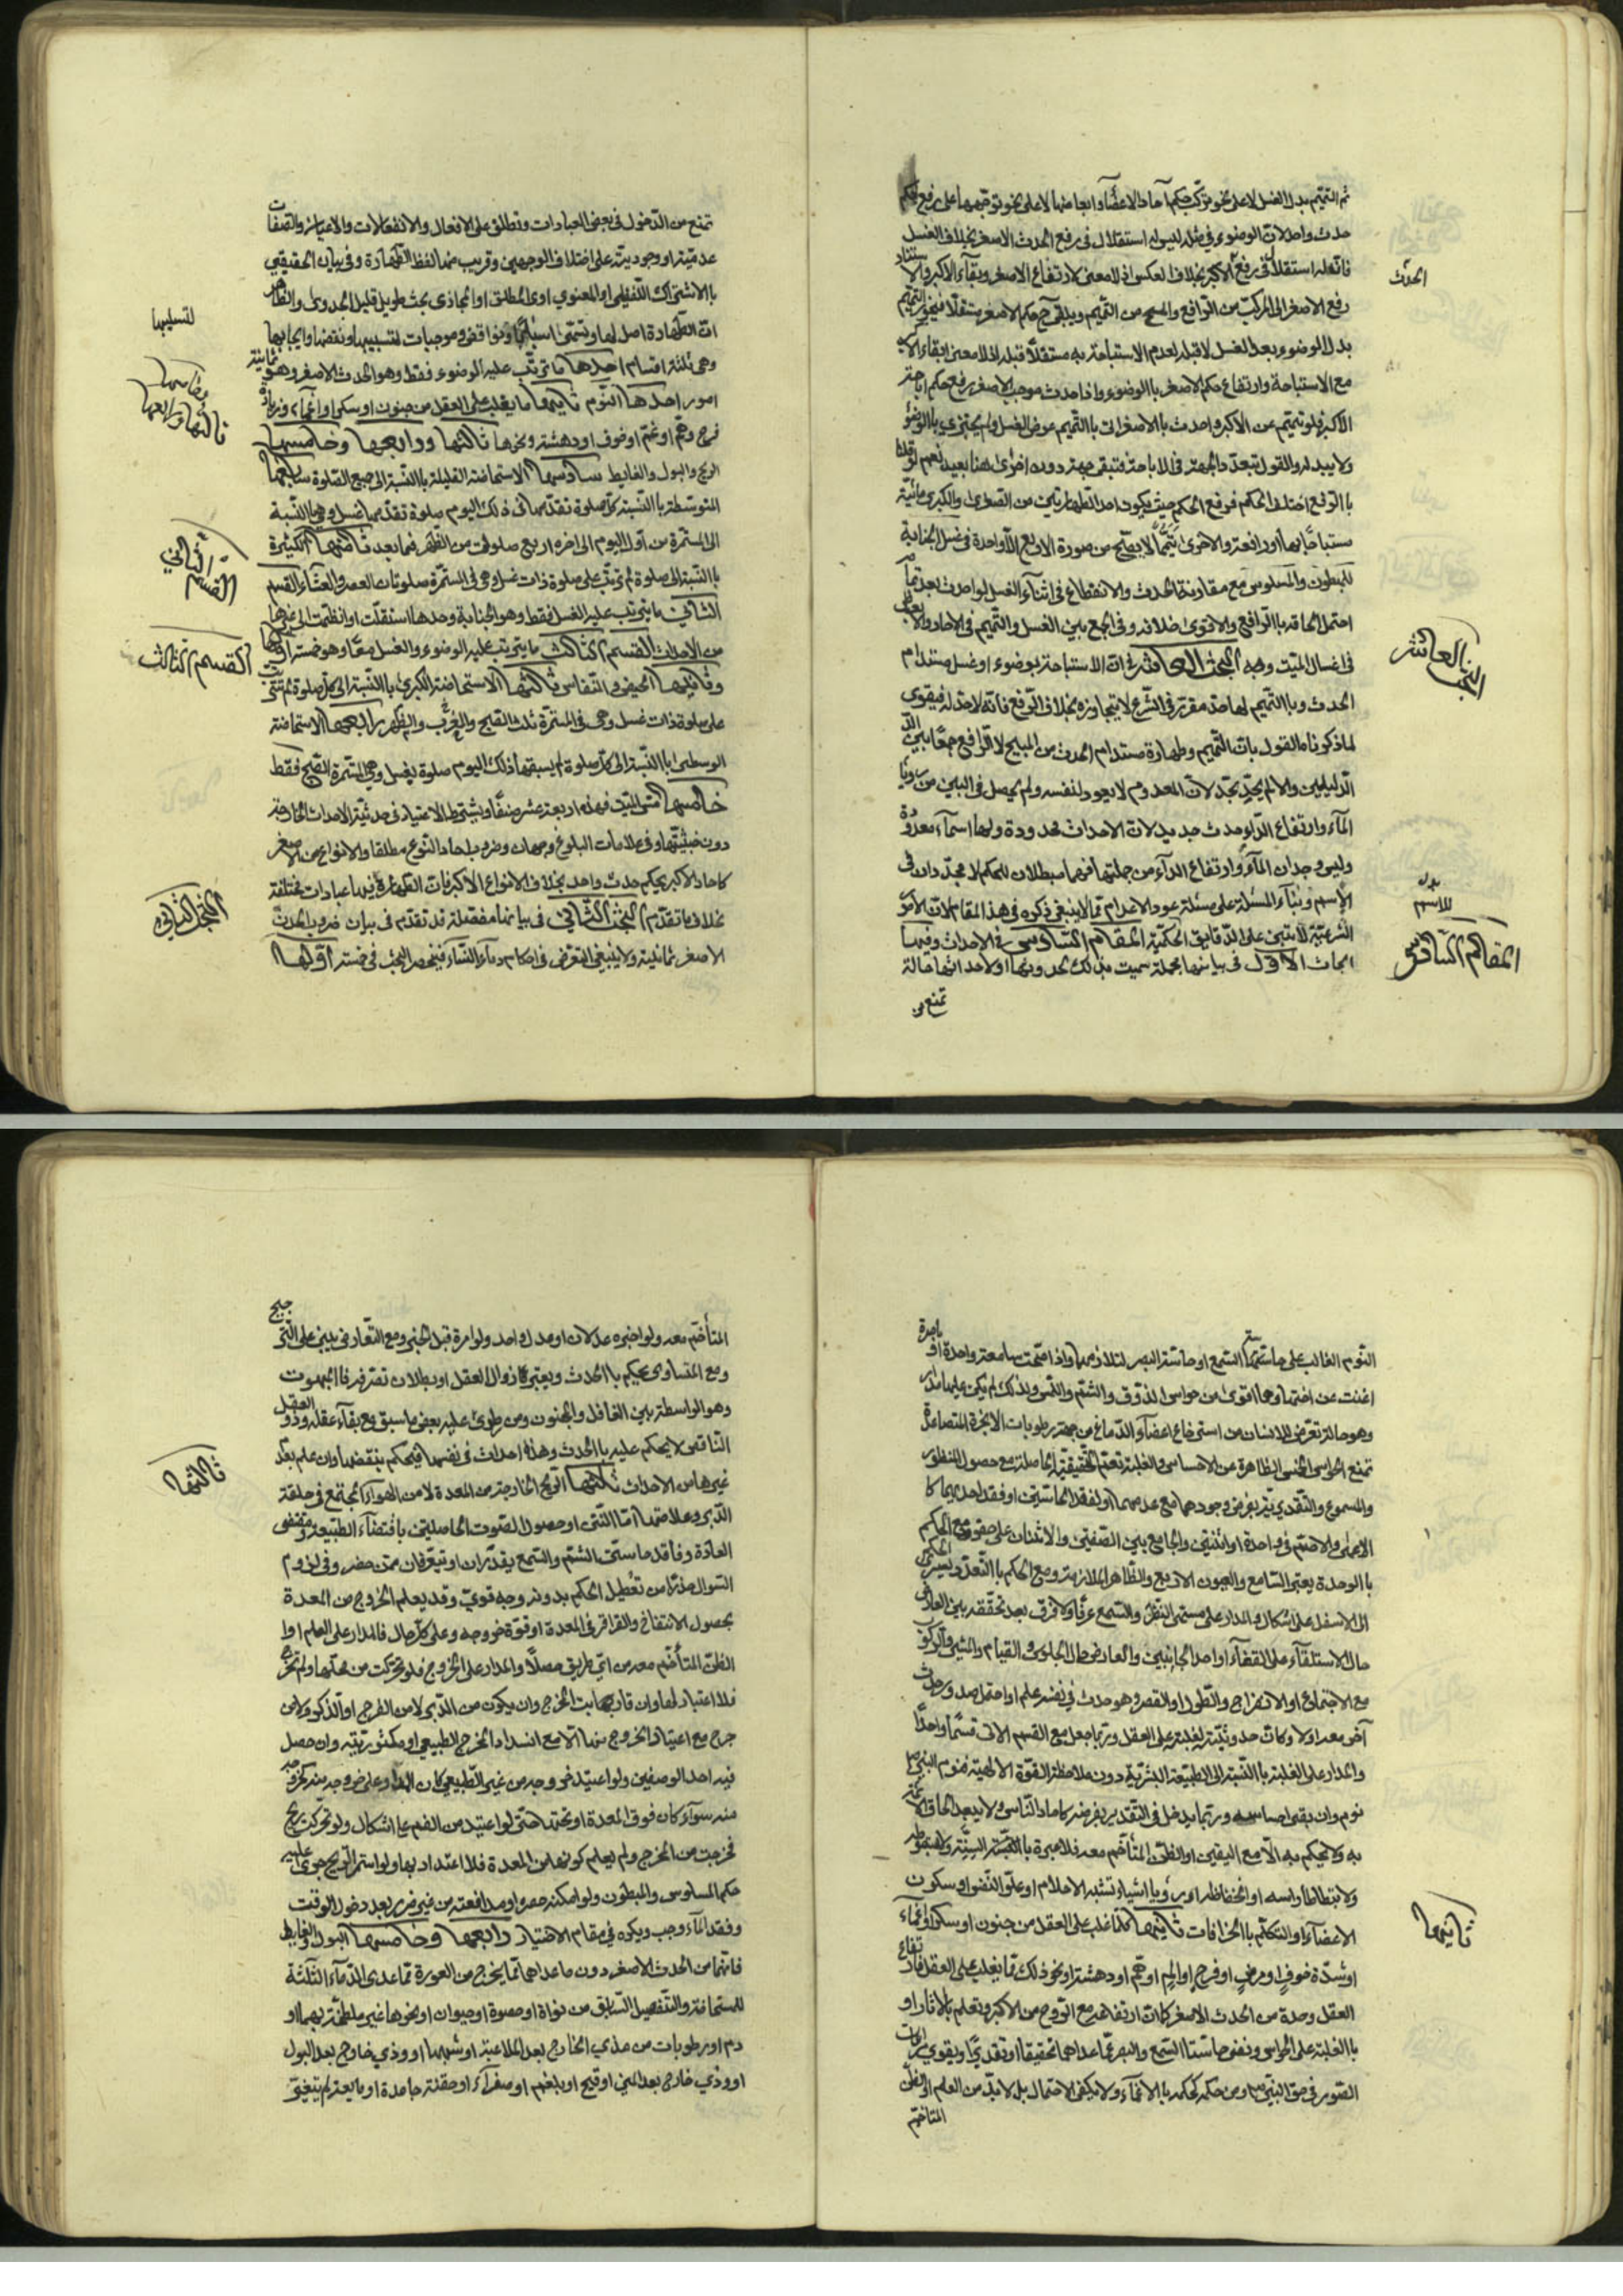 ثم التيمم بدل الغسل لا على نحو تركب حكم آحاد الاعضاء وابعاضها لا على نحو توجهها على رفع حكم
حدث واحد لان الوضوء في مثله ليس له استقلال في رفع الحدث الاصغر بخلاف الغسل
فان له استقلالا في رفع الاكبر بخلاف العكس اذ لا معنى لارتفاع الاصغر وبقاء الاكبر
الحدث
رفع الاصغر الى المركب من الرافع والمبيح من التيمم ويبقى ح حكم الاصغر مستقلا فيجوز التيمم
بدل الوضوء بعد الغسل لا قبله لعدم الاستباحة به مستقلا قبله اذ لا معنى لبقاء الاكبر
مع الاستباحة وارتفاع حكم الاصغر بالوضوء واذا حدث موجب الاصغر رفع حكم اباحة
الاكبر فلو تيمم عن الاكبر واحدث بالاصغر اتى بالتيمم عوض الغسل ولم يجتزي بالوضوء
ولا يبدله والقول بتعدد الجهة في الاباحة فتبقى جهة دون اخرى هنا بعيد نعم لو قلنا
بالرفع اختلف الحكم فرفع الحكم حيث يكون احد الطهارتين من الصغرى والكبرى مائية
مستباحا بها او رافعة والاخرى تيمما لا يصح من صورة الاربع الا واحدة في غسل الجنابة
للمبطون والمسلوس مع مقارنة الحدث والانقطاع في اثناء الغسل لو احدث بعد
احتمل الحاقه بالرافع والاقوى خلافه وفي الجمع بين الغسل والتيمم في الاحاد
في اغسال الميت وجه البحث العاشر في ان الاستباحة بوضوء او غسل مستدام
البحث العاشر
الحدث وبالتيمم لها حد مقرر في الشرع لا يتجاوزه بخلاف الرفع فانه لا حد له فيقوى
لما ذكرنا ما القول بان التيمم وطهارة مستدام الحدث من المبيح لا الرافع جمعا بين
الدليلين والا لم يتجدد لان المعدوم لا يعود لنفسه ولم يحصل في البين من
الماء وارتفاع الداء حدث جديد لان الاحداث محدودة ولها اسماء معدودة
وليس وجدان الماء وارتفاع الداء من جملتها فهما مبطلان للحكم لا مجددان
بدل
للاسم
الاسم وبناء المسئلة على مسئلة عود الاعدام مما لا ينبغي ذكره في هذا المقام لان الامور
الشرعية لا تبتنى على الدقايق الحكمية المقام السادس في الاحداث وفيها
المقام السادس
ابحاث الاول في بيانها مجملة سميت بذلك لحدوثها او لاحداثها حالة
تمنع من
تمنع من الدخول في بعض العبادات وتطلق على الافعال والانفعالات والاعيان والصفات
عدمية او وجودية على اختلاف الوجهين وقريب منها لفظ الطهارة وفي بيان الحقيقي
بالاشتراك اللفظي او المعنوي او المطلق او المجازي بحث طويل قليل الجدوى والظاهر
ان الطهارة اصل لها وتسمى اسبابا ونواقض وموجبات لتسبيبها ونقضها وايجابها
لتسبيبها
وهي ثلثة اقسام احدها ما ترتب عليه الوضوء فقط وهو الحدث الاصغر وهو ثمانية
امور احدها النوم ثانيها ما يغلب على العقل من جنون او سكر او اغماء وزيادة
ثالثها ورابعها
وخامسها
فرح وهم او غم او خوف او دهشة ونحوها ثالثها ورابعها وخامسها
الريح والبول والغايط سادسها الاستحاضة القليلة بالنسبة الى جميع الصلوة سابعها
المتوسطة بالنسبة كل صلوة تقدمها في ذلك اليوم صلوة تقدمها غسل وهي بالنسبة
الى المستمرة من اول اليوم الى اخره اربع صلوات من الظهر فما بعد ثامنها الكثيرة
بالنسبة الى صلوة لم ترتب على صلوة ذات غسل وهي في المستمرة صلوتان العصر والعشاء القسم
القسم الثاني
الثاني ما يترتب عليه الغسل فقط وهو الجنابة وحدها استقلت او انظمت الى غيرها
من الاحداث القسم الثالث ما يترتب عليه الوضوء والغسل معا وهو خمسة اولها
القسم الثالث
وثانيها الحيض والنفاس ثالثها الاستحاضة الكبرى بالنسبة الى كل صلوة لم تترتب
على صلوة ذات غسل وهي في المستمرة ثلث الصبح والمغرب والظهر رابعها الاستحاضة
الوسطى بالنسبة الى كل صلوة لم يسبقها ذلك اليوم صلوة بغسل وهي في المستمرة الصبح فقط
خامسها مس الميت فهذه اربعة عشر صنفا ويشترط الاعتياد في حدثية الاحداث الخارجة
دون خبثيتها وفي علامات البلوغ وجهان وضروب احاد النوع مطلقا والانواع من الاصغر
كاحاد الاكبر بحكم حدث واحد بخلاف الانواع الاكبر فان الطهارة فيها عبادات مختلفة
بخلاف ما تقدم البحث الثاني في بيانها مفصلة قد تقدم في بيان ضروب الحدث
البحث الثاني
الاصغر ثمانية ولا ينبغي التعرض في احكام دماء النساء فينحصر البحث في خمسة اولها
النوم الغالب على حاستي السمع او حاسة البصر لتلازمهما واذا صحت سامعة واحدة او باصرة
اغنت عن اختها وهما اقوى من حواس الذوق والشم واللمس ولذلك لم يكن عليها مدار
وهو حالة تعرض للانسان من استرخاء اعضاء الدماغ من جهة رطوبات الابخرة المتصاعدة
تمنع الحواس الخمس الظاهرة عن الاحساس والغلبة تعم الحقيقية الحاصلة مع حصول المنظور
والمسموع والتقديرية بفرض وجودهما مع عدمهما او لفقد الحاستين او فقد احديهما كا
الاعمى والاصم في واحدة او اثنتين والجامع بين الصفتين والاثنان على حقو مع الحكم
بالوحدة يعتبر السامع والعيون الاربع والظاهر الملازمة ومع الحكم بالتعدد
الى الاسفل على اشكال والمدار على مسمى النظر والسمع عرفا ولا فرق بعد تحققه بين العارض
حال الاستلقاء على القفاء او احد الجانبين والعارض حال الجلوس والقيام والمشي والركوب
مع الاجتماع او الانفراج والطول او القصر وهو حدث في نفسه علم او احتمل صدور حدث
آخر معه اولا وكانت حدوثيته لغلبته على العقل وربما جعل مع القسم الاتي قسما واحدا
والمدار على الغلبة بالنسبة الى الطبيعة البشرية دون ملاحظة القوة الالهية فنوم النبي ص
نوم وان بقى احساسه وربما يدخل في التقدير بفرضه كاحاد الناس ولا يبعد الحاق الائمة
به ولا يحكم به الا مع اليقين او الظن المتأخم معه فلا عبرة بالخفقة السنة ولا بهبوط
ولا بتطأطأ راسه او انخفاظه او رؤيا اشياء تشبه الاحلام او علو النفس او سكون
الاعضاء او التكلم بالخرافات ثانيها كلما غلب على العقل من جنون او سكر او اغماء
ثانيها
او شدة خوف او مرض او فرح او الم او هم او دهشة او نحو ذلك مما يغلب على العقل فارتفاع
العقل وحده من الحدث الاصغر كما ان ارتفاعه مع الروح من الاكبر وتعلم بالاثار او
بالغلبة على الحواس ونفي حاستا السمع والبصر عما عداهما تحقيقا او تقديرا ويقوى
الصور في حق النبي ص ومن حكمه كحكمه بالاغماء ولا يكفي الاحتمال بل لابد من العلم او الظن
المتاخم
المتأخم معه ولو اخبره عدلان او عدل واحد ولو امرة قبل الخبر ومع التعارض يبنى على الترجيح
ومع التساوى يحكم بالحدث ويعتبر كا زوال العقل او بطلان تصرفه فالمبهوت
وهو الواسطة بين الغافل والمجنون ومن طرئ عليه بعض ما سبق مع بقاء عقله وذو العقل
الناقص لا يحكم عليه بالحدث وهذه احداث في نفسها فيحكم بنقضها وان علم بعدم
غيرها من الاحداث ثالثها الريح الخارجة من المعدة لا من الهواء المجتمع في حلقة
ثالثها
الدبر وعلامتها اما النتن او حصول الصوت الحاصلين باقتضاء الطبيعة ومقتضى
العادة وفاقد حاستي الشم والسمع يقدران او يتعرفان ممن حضر وفي لزوم
السؤال حذرا من تعطيل الحكم بدونه وجه قوي وقد يعلم الخروج من المعدة
بحصول الانتفاخ والقراقر في المعدة او قوة خروجه وعلى كل حال فالمدار على العلم او ا
الظن المتأخم معه من اي طريق حصلا والمدار على الخروج فلو تحركت من محلها ولم تخرج
فلا اعتبار لها وان قاربت المخرج وان يكون من الدبر لا من الفرج او الذكر ولا من
جرح مع اعتياد الخروج منها الا مع انسداد المخرج الطبيعي او مكثور تيته وان حصل
فيه احد الوصفين ولو اعتيد خروجه من غير الطبيعي كان المدار على خروجه منه كخروجه
منه سواء كان فوق المعدة او تحتها حتى لو اعتيد من الفم على اشكال ولو تحركت ريح
فخرجت من المخرج ولم يعلم كونها من المعدة فلا اعتداد بها ولو استمر الريح جرى عليه
حكم المسلوس والمبطون ولو امكنه حصره او مدافعته من غير ضرر بعد دخول الوقت
وفقد الماء وجب ويكره في مقام الاختيار رابعها وخامسها البول والغايط
فانهما من الحدث الاصغر دون ما عداهما مما يخرج من العورة مما عدى الدماء الثلثة
للاستحاضة والتفصيل السابق من نواة او حصوة او حيوان او نحوها غير ملطخة بهما او
دم او رطوبات من مذي الخارج بعد الملاعبة او شبهها او وذي خارج بعد البول
او وذي خارج بعد المني او قيح او بلغم او صفراء او حقنة جامدة او مايعة لم يتغير